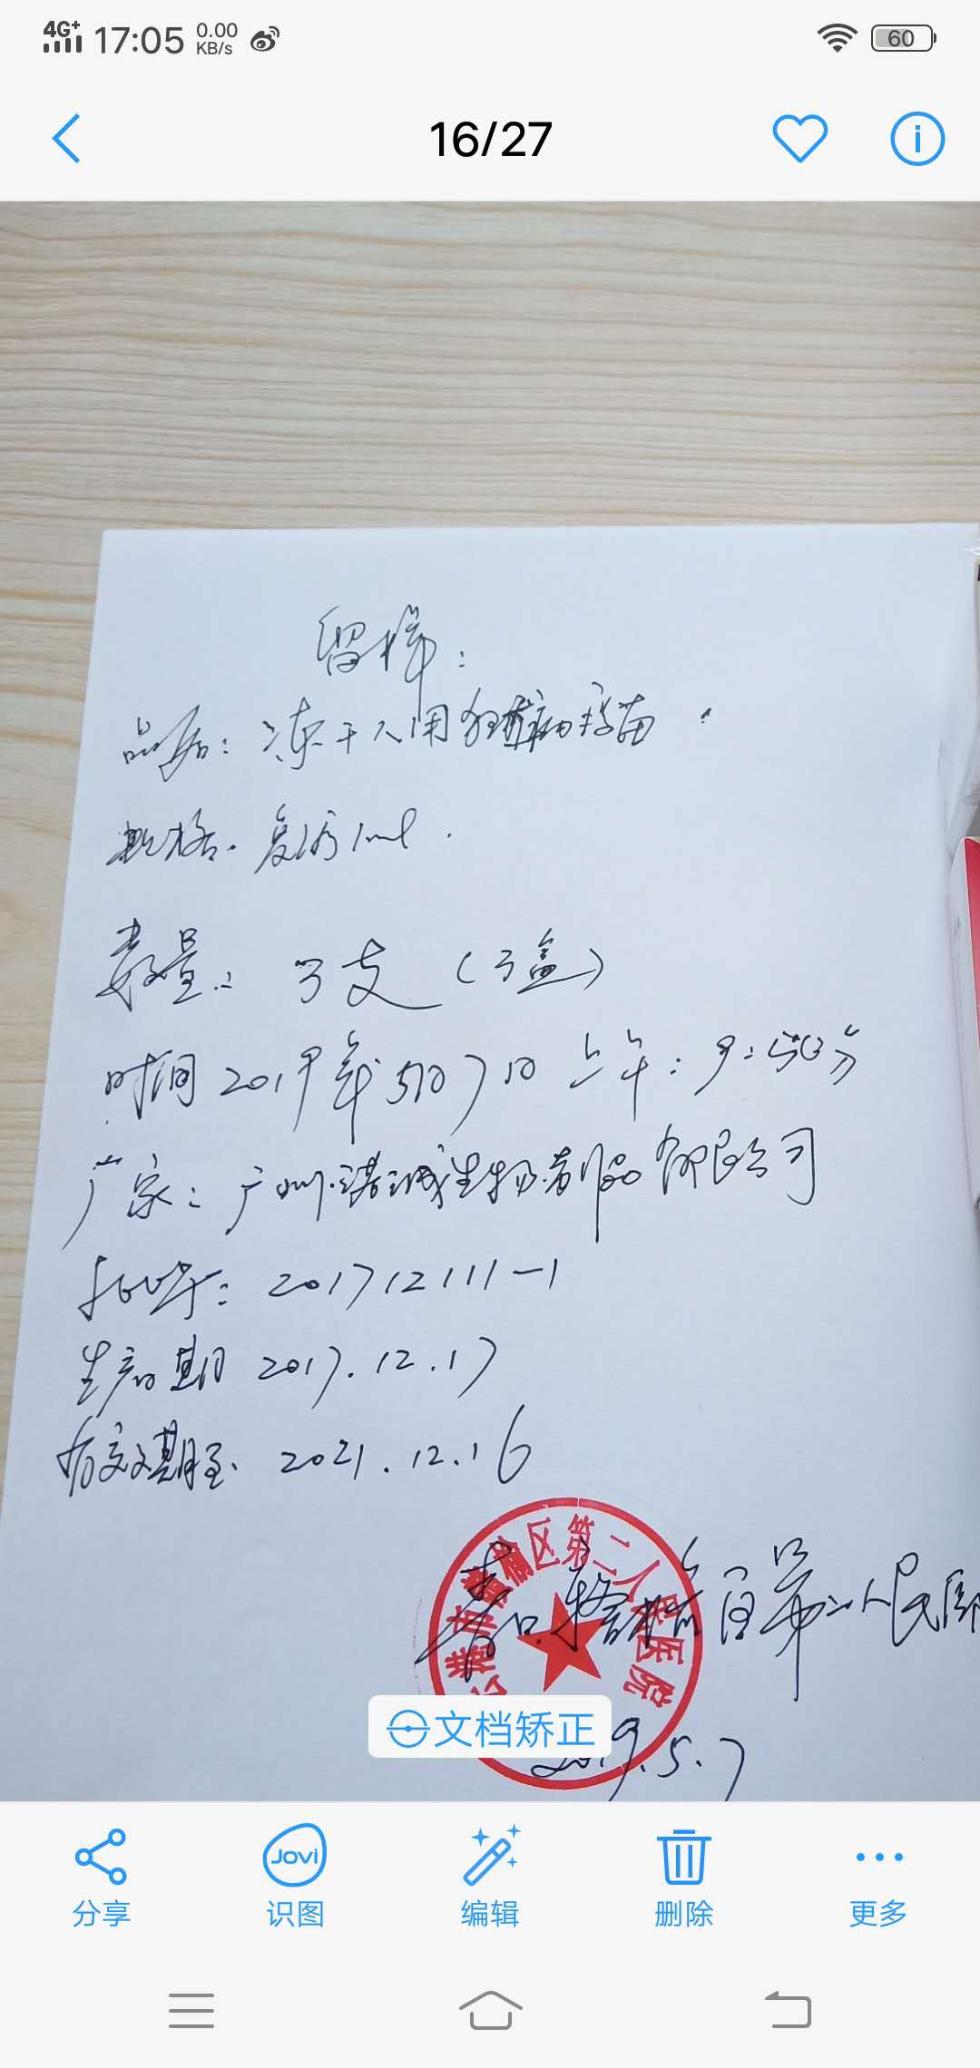 4G+ 17:05 0.00 KB/s 60
16/27
留样:
品名: 冻干人用狂犬病疫苗.
规格. 复溶1ml.
数量: 3支 (3盒)
时间 2019年5月7日 上午: 9:50分
厂家: 广州诺诚生物制品有限公司
批号: 201712111-1
生产日期 2017.12.17
有效期至. 2021.12.16
港市赣榆区第二人民医院
赣榆区第二人民医
2019.5.7
文档矫正
分享
Jovi
识图
编辑
删除
更多